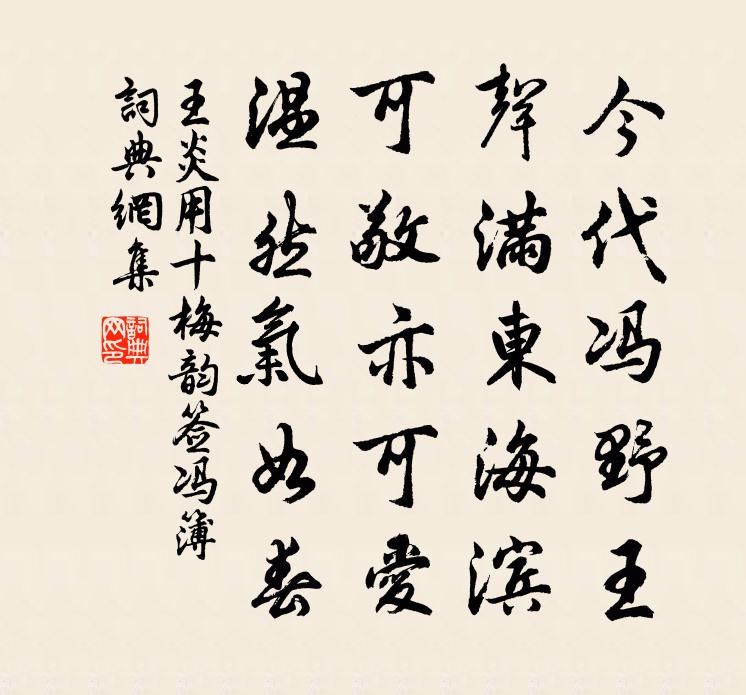 今代冯野王
聲滿東海滨
可敬亦可愛
温然氣如春
王炎用十梅韵签冯簿
詞典網集
詞典网印